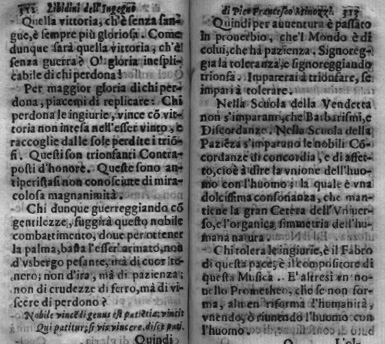 312 Libidini dell'Ingegno
Quella vittoria, ch'è senza san-
gue, è sempre più gloriosa. Come
dunque sarà quella vittoria, ch'è
senza guerra? O! gloria inespli-
cabile di chi perdona!
Per maggior gloria di chi per-
dona, piacemi di replicare: Chi
perdona le ingiurie, vince cõ vit-
toria non intesa nell'esser vinto, e
raccoglie dalle sole perdite i triõ-
fi. Questi son trionfanti Contra-
posti d'honore. Queste sono an-
tiperistasi non conosciute di mira-
colosa magnanimità.
Chi dunque guerreggiando cõ
gentilezze, fuggirà questo nobile
combattimento, doue per ottener
la palma, basta l'esser armato, non
d'vsbergo pesante, mà di cuor to-
nero; non d'ira, mà di pazienza;
non di crudezze di ferro, mà di vi-
scere di perdono?
Nobile vincẽdi genus est patiẽtia, vincit
Qui patitur; si vis vincere, disce pati.
Quindi
di Pier Francesco Minozzi. 313
Quindi per auuentura è passato
in prouerbio, che'l Mondo è di
colui, che ha pazienza. Signoreg-
gia la toleranza, e signoreggiando
trionfa. Imparerai à trionfare, se
impari à tolerare.
Nella Scuola della Vendetta
non s'imparano, che Barbarismi, e
Discordanze. Nella Scuola della
Paziẽza s'imparano le nobili Cõ-
cordanze di concordia, e di affet-
to, cioè à dire la vnione dell'huo-
mo con l'huomo: la quale è vna
dolcissima consonanza, che man-
tiene la gran Cetera dell'Vniuer-
so, e l'organica simmetria dell'hu-
mana natura.
Chi tolera le ingiurie, è il Fabro
di questa pace, è il compositore di
questa Musica. E' altresi vn no-
uello Prometheo, che se non for-
ma, almen riforma l'humanità,
vnendo, ò riunendo l'huomo con
l'huomo.